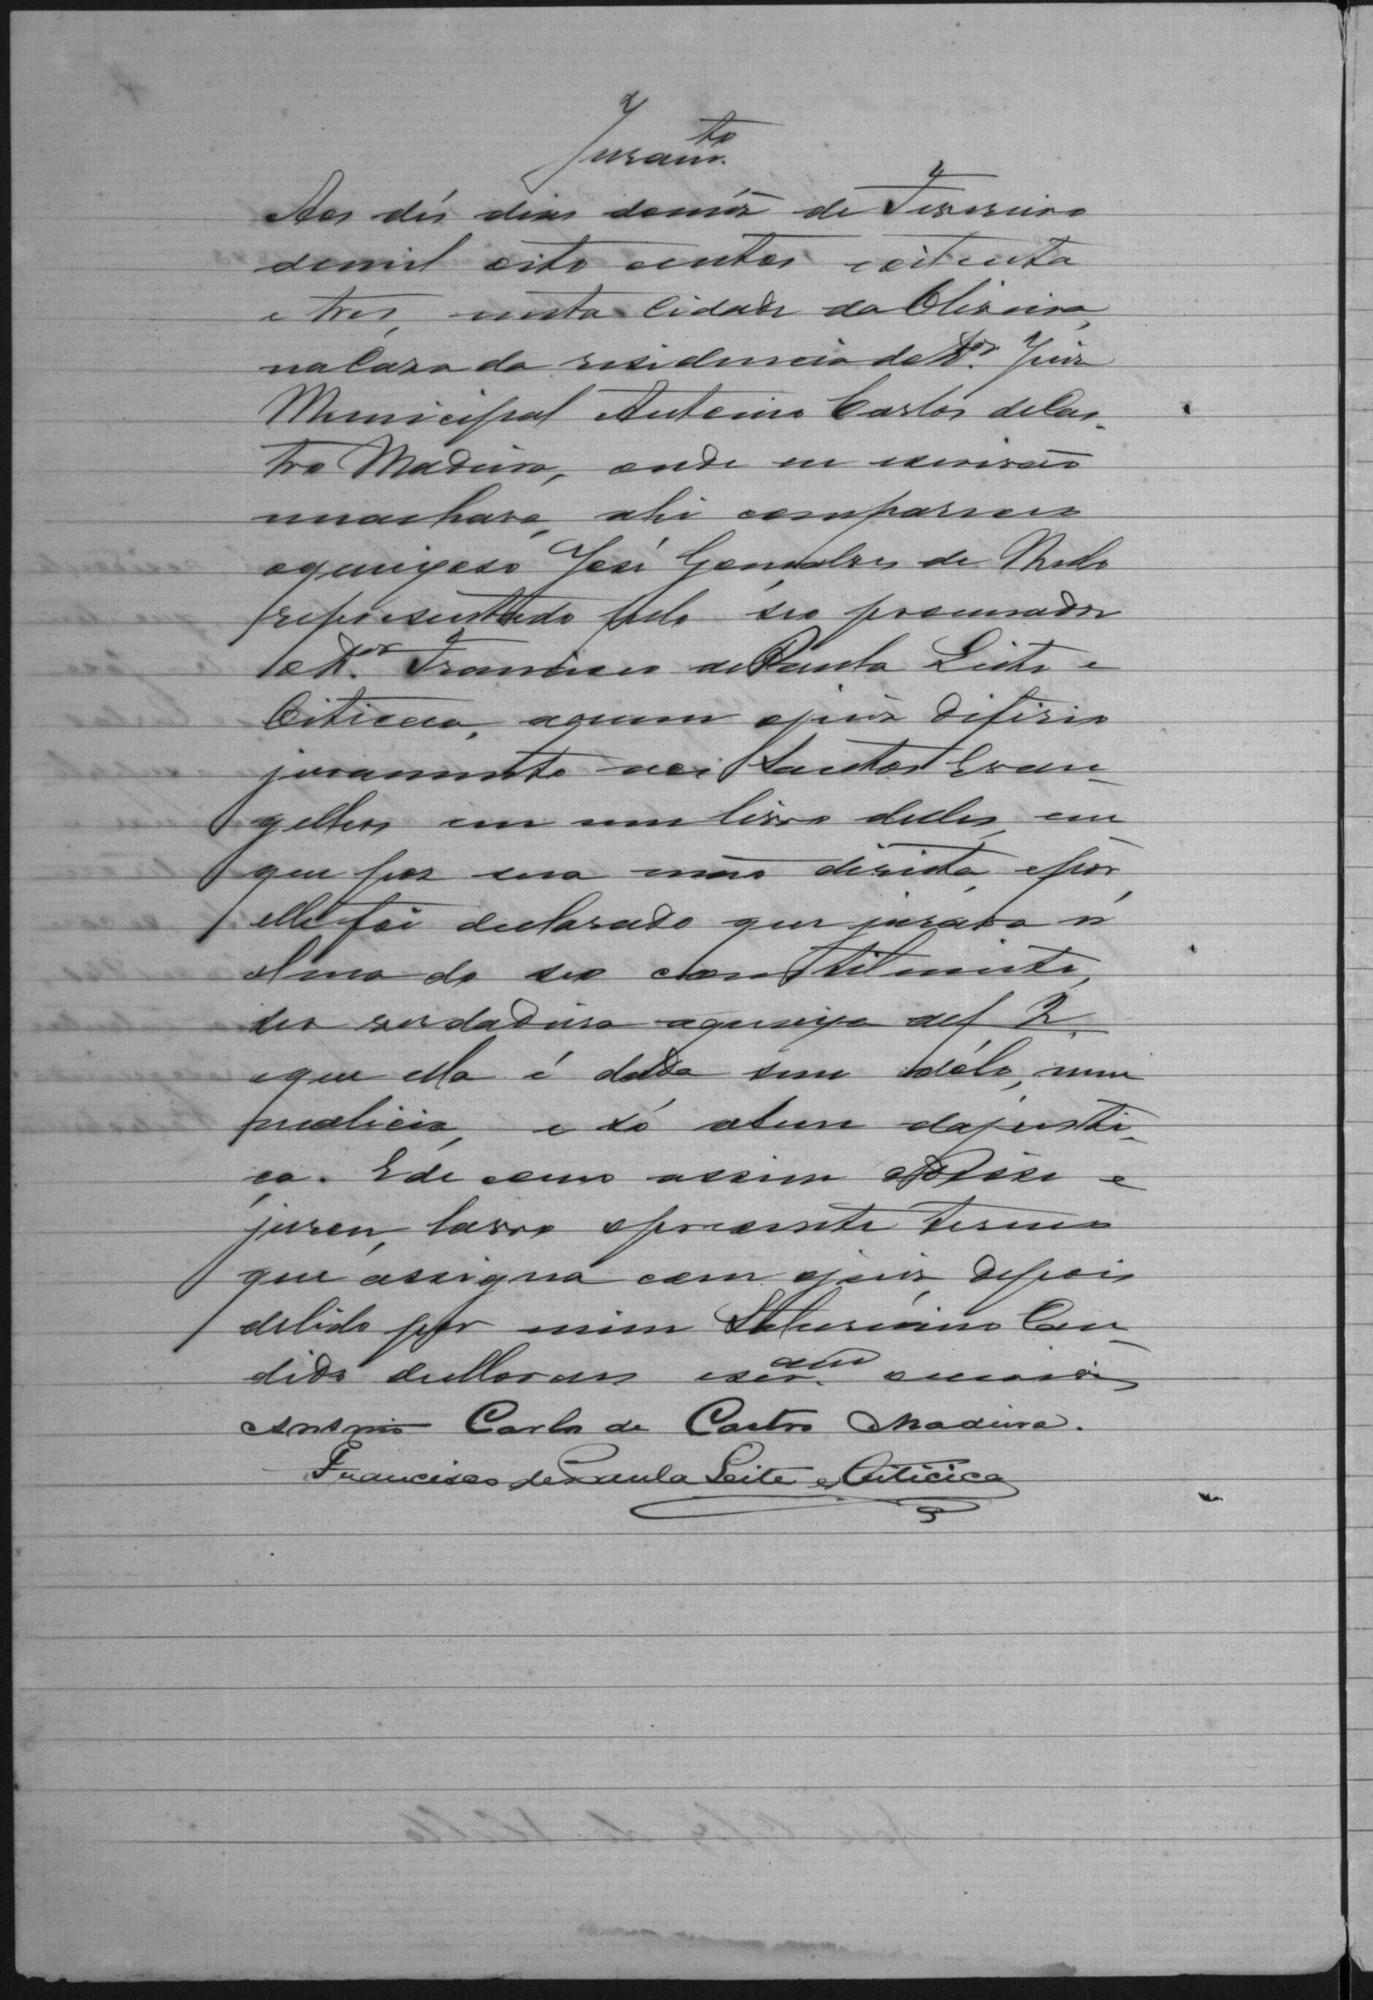 Juram.to
Aos dés dias do mês de Fevereiro
de mil oito centos e oitenta
e tres, nesta Cidade da Oliveira,
na Casa da residencia do Dor. Juiz
Municipal Antonio Carlos de Cas-
tro Madeira, onde eu escrivão
me achava, ahi compareceo
o queixoso José Gonçalves de Mello
representado pelo seo procurador
o Dor. Francisco de Paula Leite e
Oiticica, a quem o juiz diferio
juramento aos Santos Evan-
gelhos em um livro delles, em
que poz sua mão direita, e por
elle foi declarado que jurava n'
alma do seo constituinte,
ser verdadeira a queixa de f 2
e que ella é dada sem dólo, nem
malicia, e só a bem da justi-
ça. E de como assim o disse e
jurou, lavro o presente termo
que assigna com o juiz, depois
de lido por mim Can-
dido de Moraes escr.am o escrevi
Antonio Carlos de Castro Madeira.
Francisco de Paula Leite e Oiticica